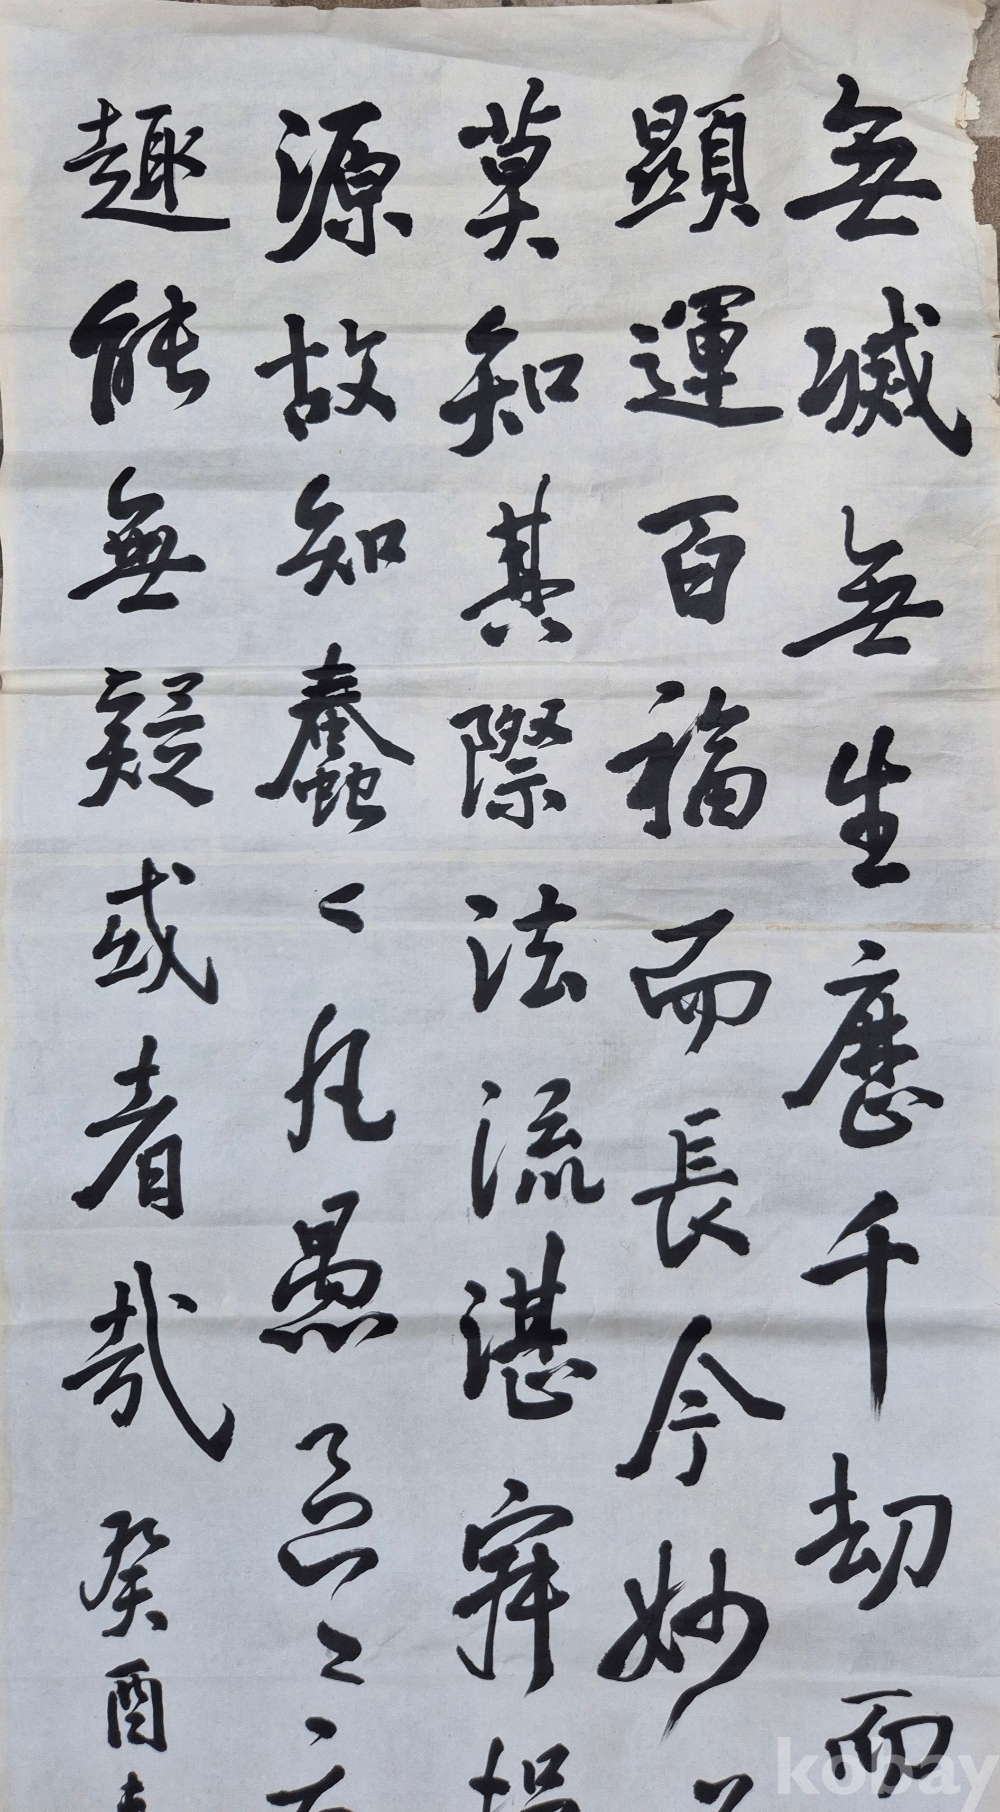 無滅無生歷千劫而
顯運百福而長今妙
莫知其際法流湛寂挹
源故知蠢々凡愚區々
趣能無疑或者哉 癸酉
kobay